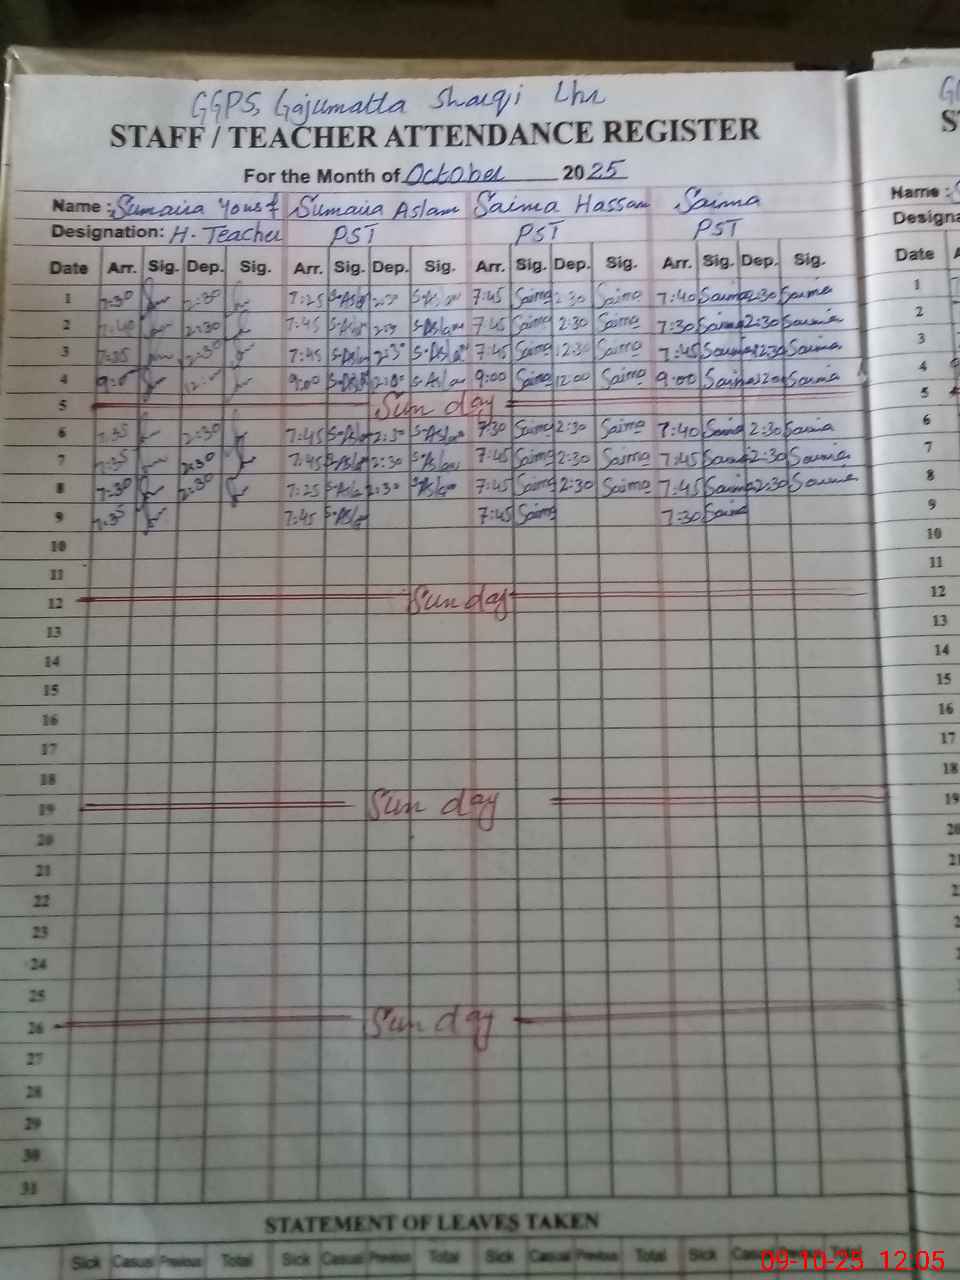 GGPS, Gajumatta Sharqi Lhr
STAFF / TEACHER ATTENDANCE REGISTER
For the Month of October 2025
Name: Sumaira Yousf Sumaira Aslam Saima Hassan Saima
Designation: H. Teacher PST PST PST
Date Arr. Sig. Dep. Sig. Arr. Sig. Dep. Sig. Arr. Sig. Dep. Sig. Arr. Sig. Dep. Sig.
1 7:30 2:30 7:25 S-Aslam 2:30 S-Aslam 7:45 Saima 2:30 Saima 7:40 Saima 2:30 Saima
2 7:40 2:30 7:45 S-Aslam 2:30 S-Aslam 7:45 Saima 2:30 Saima 7:30 Saima 2:30 Saima
3 7:35 2:30 7:45 S-Aslam 2:30 S-Aslam 7:45 Saima 2:30 Saima 7:45 Saima 2:30 Saima
4 9:00 12:00 9:00 S-Aslam S-Aslam 9:00 Saima 12:00 Saima 9:00 Saima Saima
5 Sunday
6 7:35 2:30 7:45 S-Aslam 2:30 S-Aslam 7:30 Saima 2:30 Saima 7:40 Saima 2:30 Saima
7 7:35 2:30 7:45 S-Aslam 2:30 S-Aslam 7:45 Saima 2:30 Saima 7:45 Saima 2:30 Saima
8 7:30 2:30 7:25 S-Aslam 2:30 S-Aslam 7:45 Saima 2:30 Saima 7:45 Saima 2:30 Saima
9 7:35 7:45 S-Aslam 7:45 Saima 7:30 Saima
10
11
12 Sunday
13
14
15
16
17
18
19 Sunday
20
21
22
23
24
25
26 Sunday
27
28
29
30
31
STATEMENT OF LEAVES TAKEN
Sick Casual Previous Total Sick Casual Previous Total Sick Casual Previous Total Sick Casual Previous Total
Name :
Designa
Date
1
2
3
4
5
6
7
8
9
10
11
12
13
14
15
16
17
18
19
20
21
22
23
09-10-25 12:05